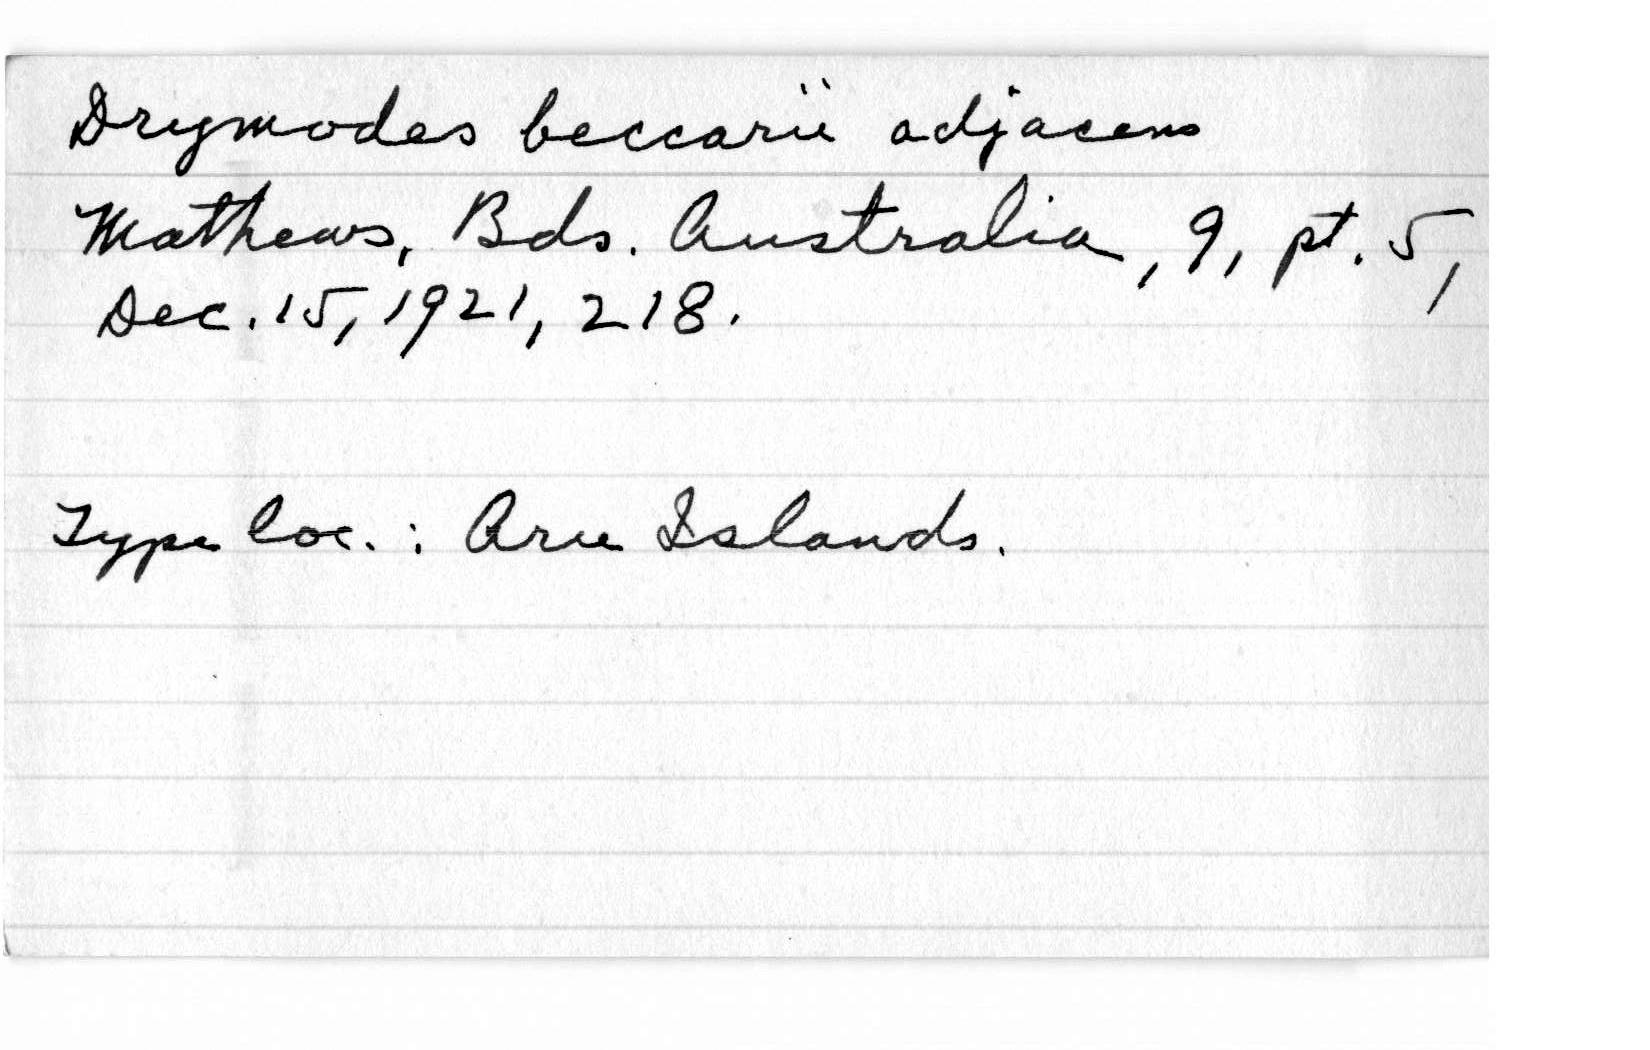 Drymodes beccarii adjacens
Mathews, Bds. Australia, 9, pt. 5,
Dec. 15, 1921, 218.
Type loc. : Aru Islands.